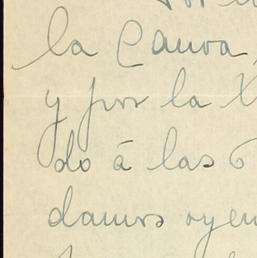 la Cauva
y por la X
do á las 6
damos oyen